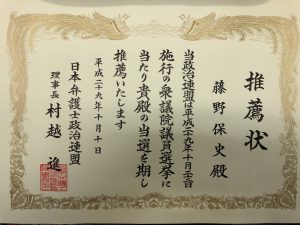 推薦状
藤野保史殿
当政治連盟は平成二十九年十月二十二日
施行の衆議院議員選挙に
当たり貴殿の当選を期し
推薦いたします
平成二十九年十月十日
日本弁護士政治連盟
理事長 村越進